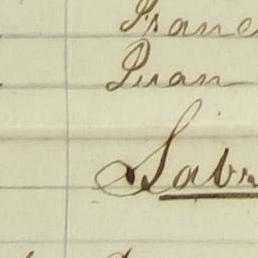 Franc
Juan
Sabr